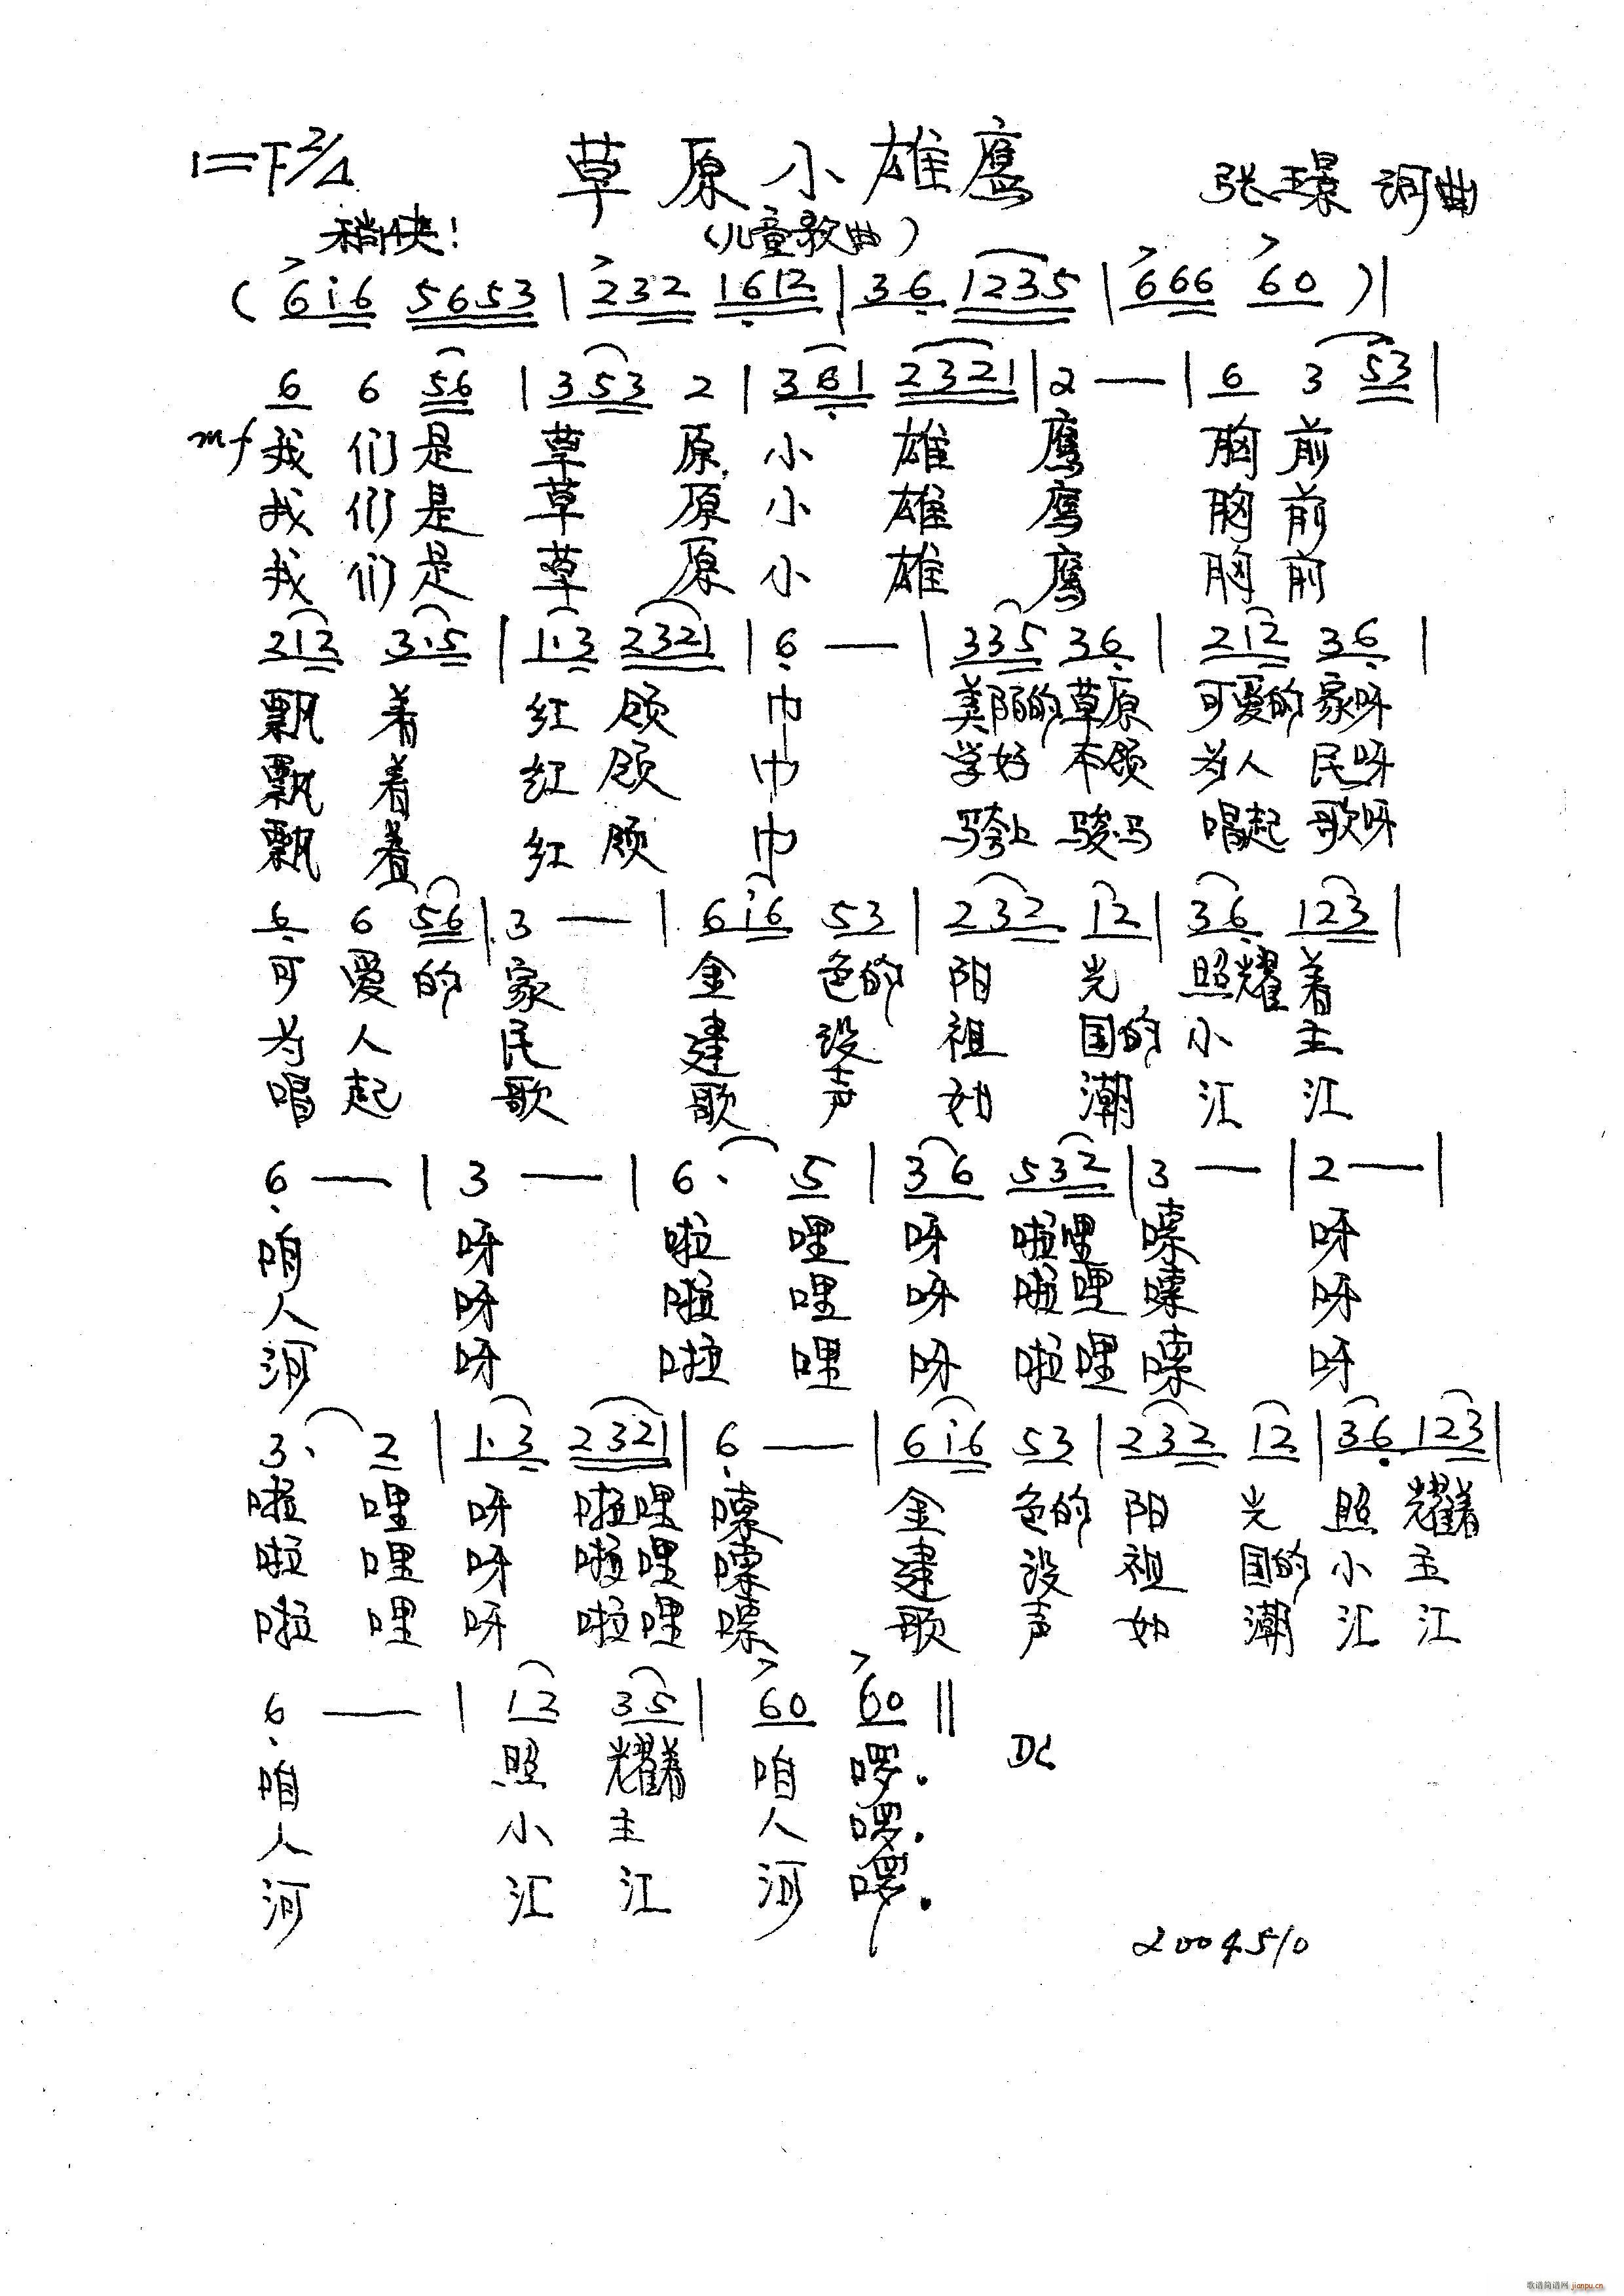 1=F 2/4 草原小雄鹰 张玉璟 词曲
稍快! (儿童歌曲)
( 6i6 5653 | 232 1612 | 36 1235 | 666 60 ) |
6 6 56 | 353 2 | 361 2321 | 2 — | 6 3 53 |
mf 我们是草原小雄鹰 胸前
我们是草原小雄鹰 胸前
我们是草原小雄鹰 胸前
212 3·5 | 1·3 2321 | 6 — | 335 36 | 212 36 |
飘着红领巾 美丽的草原 可爱的家呀
飘着红领巾 学好本领 为人民呀
飘着红领巾 骑上骏马 唱起歌呀
6 6 56 | 3 — | 6i6 53 | 232 12 | 36 123 |
可爱的家 金色的阳光照耀着
为人民 建设祖国的小主
唱起歌 歌声如潮汇江
6 — | 3 — | 6· 5 | 36 532 | 3 — | 2 — |
咱呀 啦哩呀啦哩嗦呀
人呀 啦哩呀啦哩嗦呀
河呀 啦哩呀啦哩嗦呀
3· 2 | 1·3 2321 | 6 — | 6i6 53 | 232 12 | 36 123 |
啦哩呀啦哩嗦 金色的阳光照耀着
啦哩呀啦哩嗦 建设祖国的小主
啦哩呀啦哩嗦 歌声如潮汇江
6 — | 12 35 | 60 60 ‖
咱 照耀着咱啰. DC
人 小主人啰.
河 汇江河啰.
2004510
歌谱简谱网 jianpu.cn